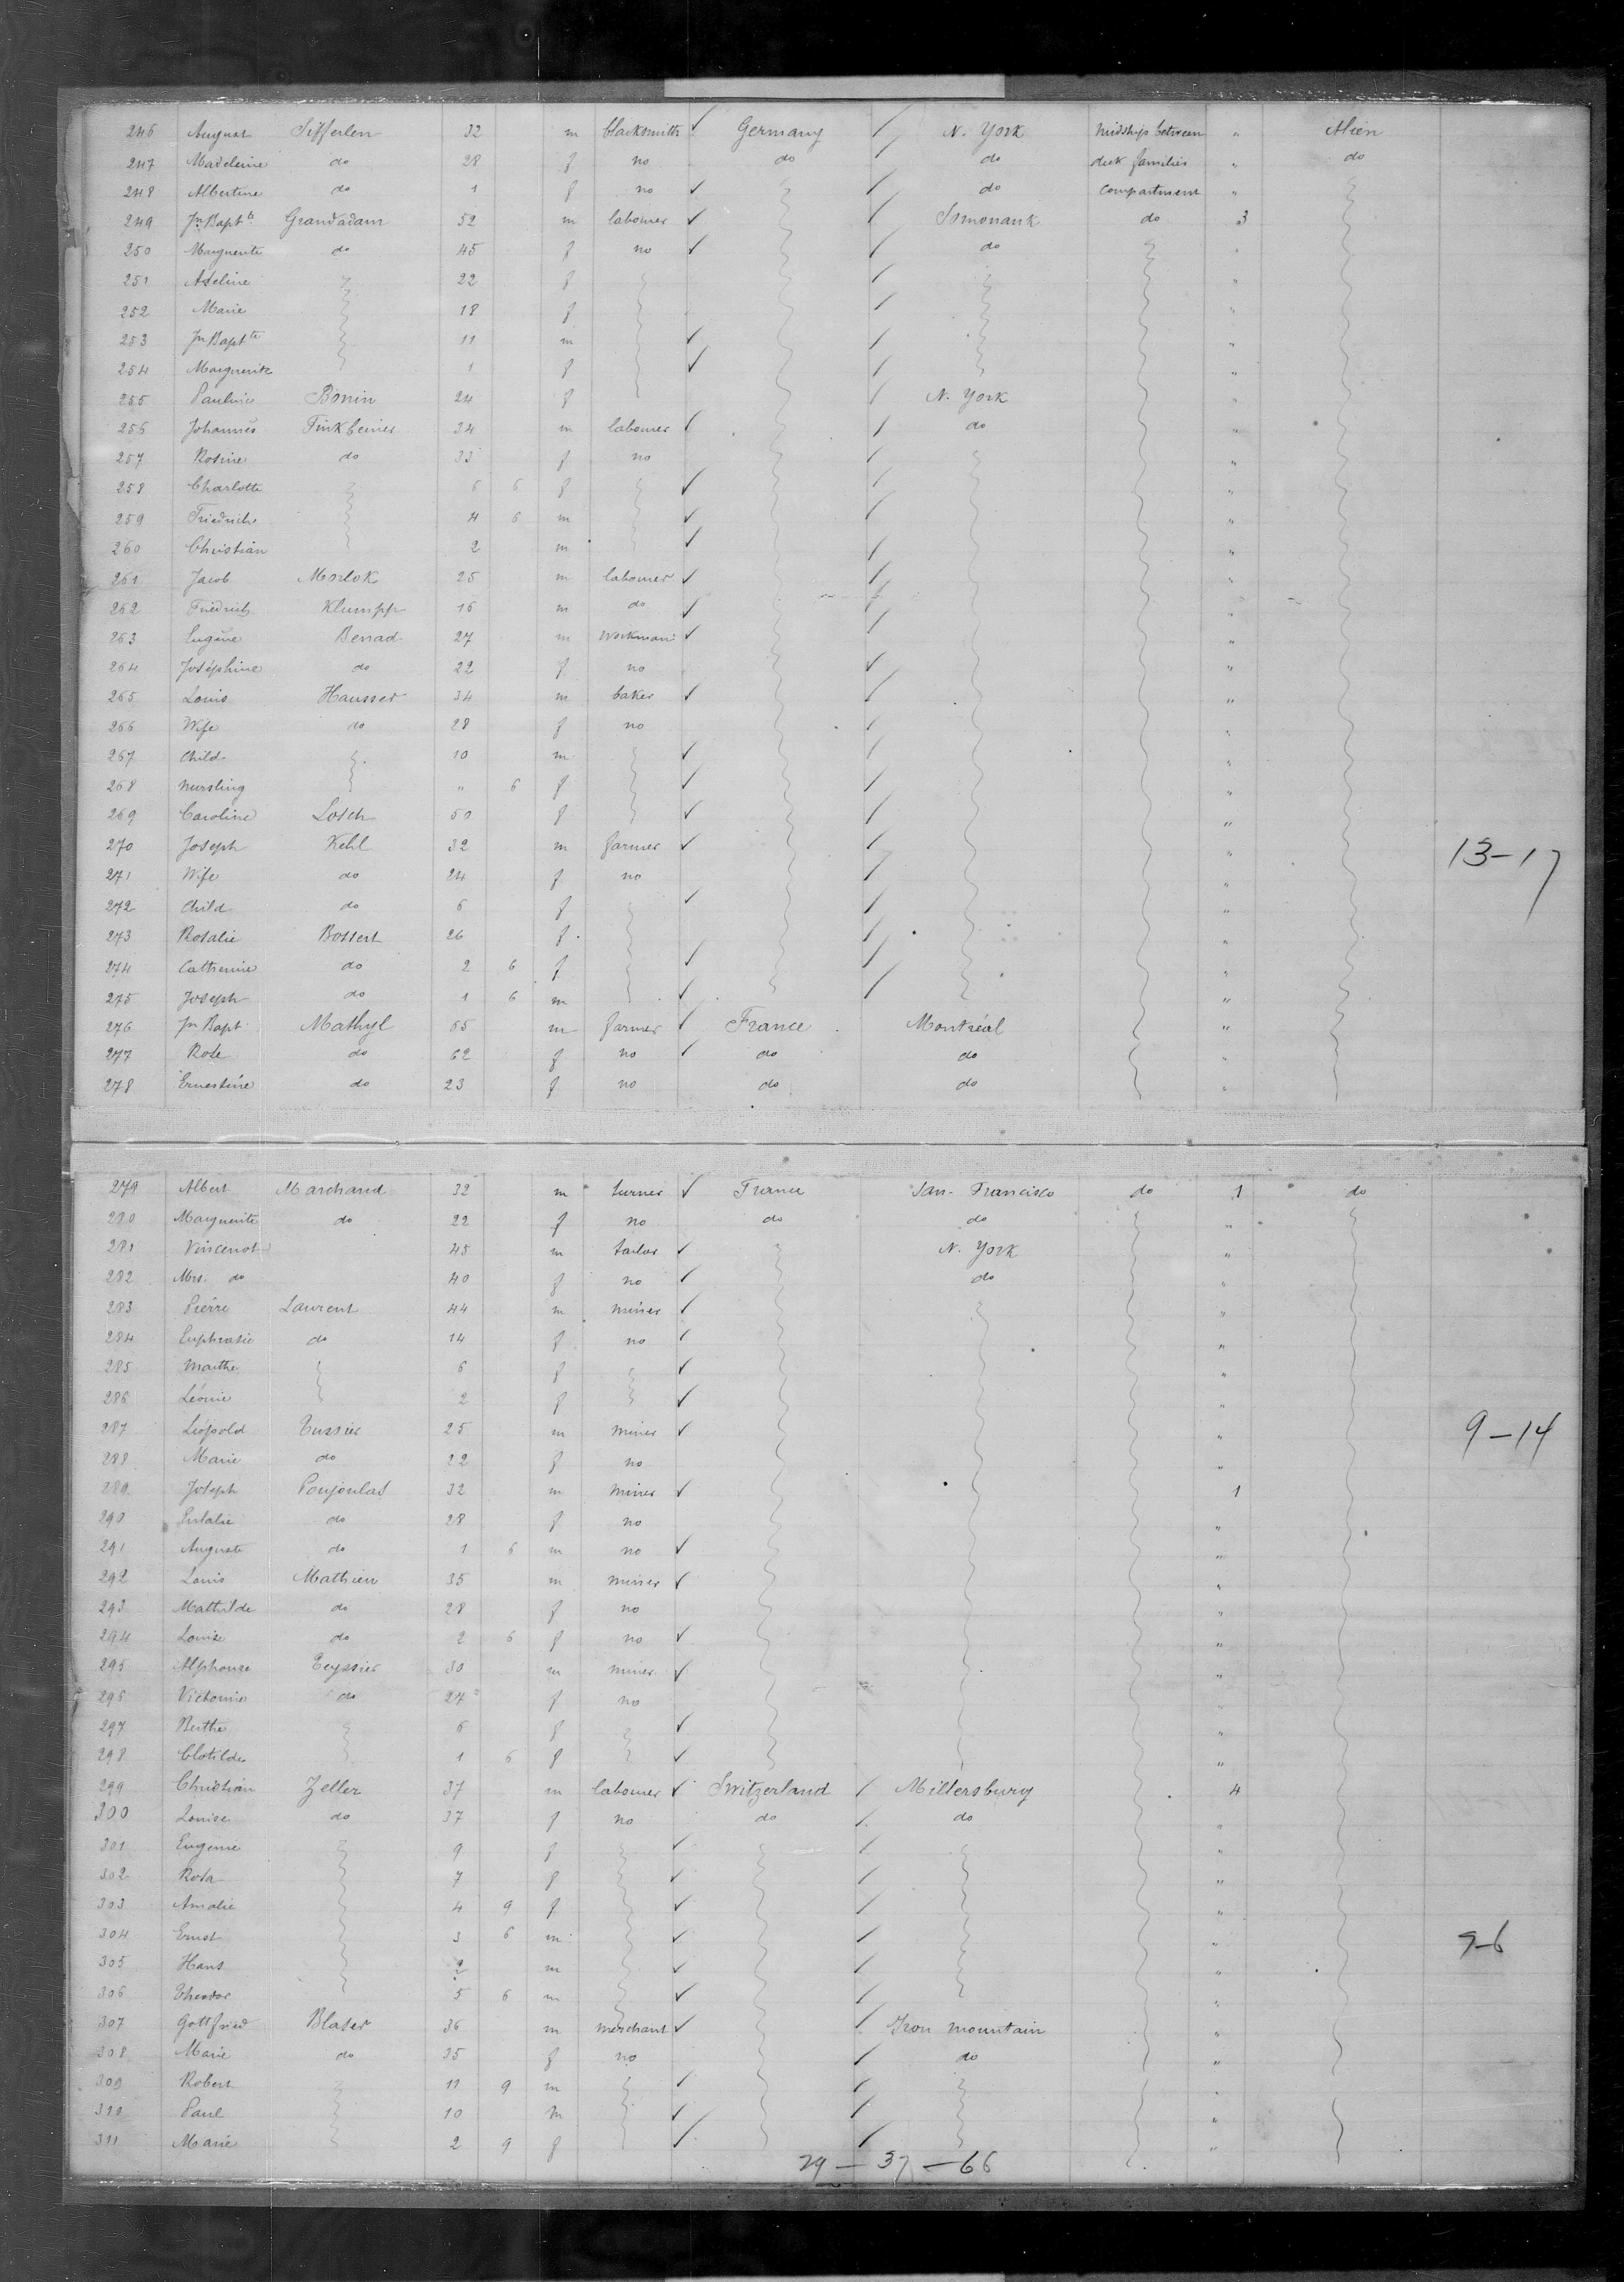 246 August Sifferlen 32 m blacksmith ✓ Germany / N. York Midship between " Alien
247 Madeleine do 28 f no do / do deck families " do
248 Albertine do 1 f no ✓ / do compartment "
249 Jn Bapt.te Grandadam 52 m labourer ✓ / Somonauk do 3
250 Marguerite do 45 f no ✓ / do "
251 Adeline 22 f / "
252 Marie 18 f / "
253 Jn Bapt.te 11 m ✓ / "
254 Marguerite 1 f ✓ / "
255 Pauline Bonin 24 f / N. York "
256 Johannes Finkbeiner 34 m labourer ✓ / do "
257 Rosine do 33 f no / "
258 Charlotte 6 6 f ✓ / "
259 Friedrich 4 6 m ✓ / "
260 Christian 2 m ✓ / "
261 Jacob Morlok 25 m labourer ✓ / "
262 Friedrich Klumpp 16 m do ✓ / "
263 Eugène Benad 27 m workman ✓ / "
264 Joséphine do 22 f no ✓ "
265 Louis Hausser 34 m baker ✓ / "
266 Wife do 28 f no / "
267 Child 10 m ✓ / "
268 nursling " 6 f ✓ / "
269 Caroline Losch 50 f ✓ / "
270 Joseph Kehl 32 m farmer ✓ / " 13-17
271 Wife do 24 f no / "
272 Child do 6 f ✓ / "
273 Rosalie Bossert 26 f / "
274 Catherine do 2 6 f ✓ / "
275 Joseph do 1 6 m ✓ / "
276 Jn Bapt Mathyl 65 m farmer ✓ France Montréal "
277 Rose do 62 f no ✓ do do "
278 Ernestine do 23 f no do do "
279 Albert Marchand 32 m turner ✓ France San-Francisco do 1 do
280 Marguerite do 22 f no do do "
281 Vincenot 45 m tailor ✓ N. York "
282 Mrs. do 40 f no ✓ do "
283 Pierre Laurent 44 m miner ✓ "
284 Euphrasie do 14 f no ✓ "
285 Marthe 6 f ✓ "
286 Léonie 2 f ✓ "
287 Léopold Tussier 25 m miner ✓ " 9-14
288 Marie do 22 f no "
289 Joseph Poujoulas 32 m miner ✓ 1
290 Eulalie do 28 f no "
291 Auguste do 1 6 m no ✓ "
292 Louis Mathieu 35 m miner ✓ "
293 Mathilde do 28 f no "
294 Louise do 2 6 f no ✓ "
295 Alphonse Teyssier 30 m miner ✓ "
296 Victorine do 27 f no "
297 Berthe 6 f ✓ "
298 Clotilde 1 6 f ✓ "
299 Christian Zeller 37 m labourer ✓ Switzerland / Millersburg 4
300 Louise do 37 f no do / do "
301 Eugenie 9 f ✓ / "
302 Rosa 7 f ✓ / "
303 Amalie 4 9 f ✓ / "
304 Ernst 3 6 m ✓ / " 7-6
305 Hans 2 m ✓ / "
306 Theodor 5 6 m ✓ / "
307 Gottfried Blaser 36 m merchant ✓ / Iron mountain "
308 Marie do 35 f no / do "
309 Robert 11 9 m ✓ / "
310 Paul 10 m ✓ / "
311 Marie 2 9 f ✓ / "
29 - 37 - 66